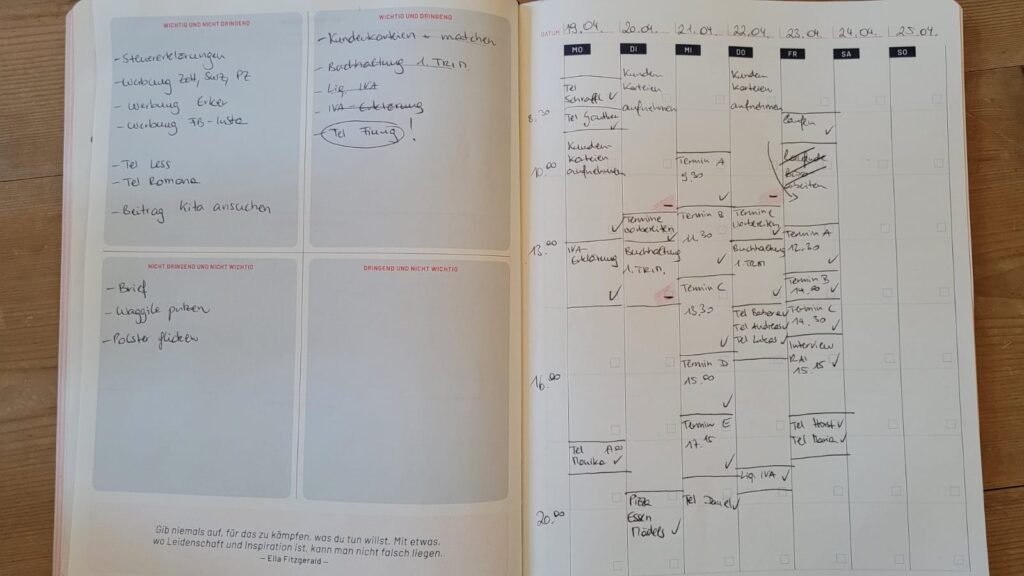 WICHTIG UND NICHT DRINGEND
- Steuererklärungen
- Werbung Zett, SWZ, PZ
- Werbung Erker
- Werbung FB-Insta
- Tel Less
- Tel Romana
- Beitrag Kita ansuchen
WICHTIG UND DRINGEND
- Kundenkarteien + matchen
- Buchhaltung 1. TRIM.
- Liq. IVA
- IVA-Erklärung
- Tel !
NICHT DRINGEND UND NICHT WICHTIG
- Brief
- Waggile putzen
- Polster flicken
DRINGEND UND NICHT WICHTIG
"Gib niemals auf, für das zu kämpfen, was du tun willst. Mit etwas,
wo Leidenschaft und Inspiration ist, kann man nicht falsch liegen.
— Ella Fitzgerald —
DATUM 19.04. 20.04. 21.04. 22.04. 23.04. 24.04. 25.04.
MO DI MI DO FR SA SO
8.30
10.00
13.00
16.00
20.00
Tel
Schraffl
Tel Gunther
Kunden
Karteien
aufnehmen
IVA-
Erklärung
Tel
Monika
Kunden
Karteien
aufnehmen
Termine
vorbereiten
Buchhaltung
1. TRIM.
Pizza
Essen
Mädels
Termin A
9.30
Termin B
11.30
Termin C
13.30
Termin D
15.00
Termin E
17.15
Tel Daniel
Kunden
Karteien
aufnehmen
Termine
vorbereiten
Buchhaltung
1. TRIM
Tel
Tel Andreas
Tel Lukas
Liq. IVA
laufen
arbeiten
Termin A
12.30
Termin B
14.00
Termin C
14.30
Interview
RAI
15.15
Tel Horst
Tel Maria